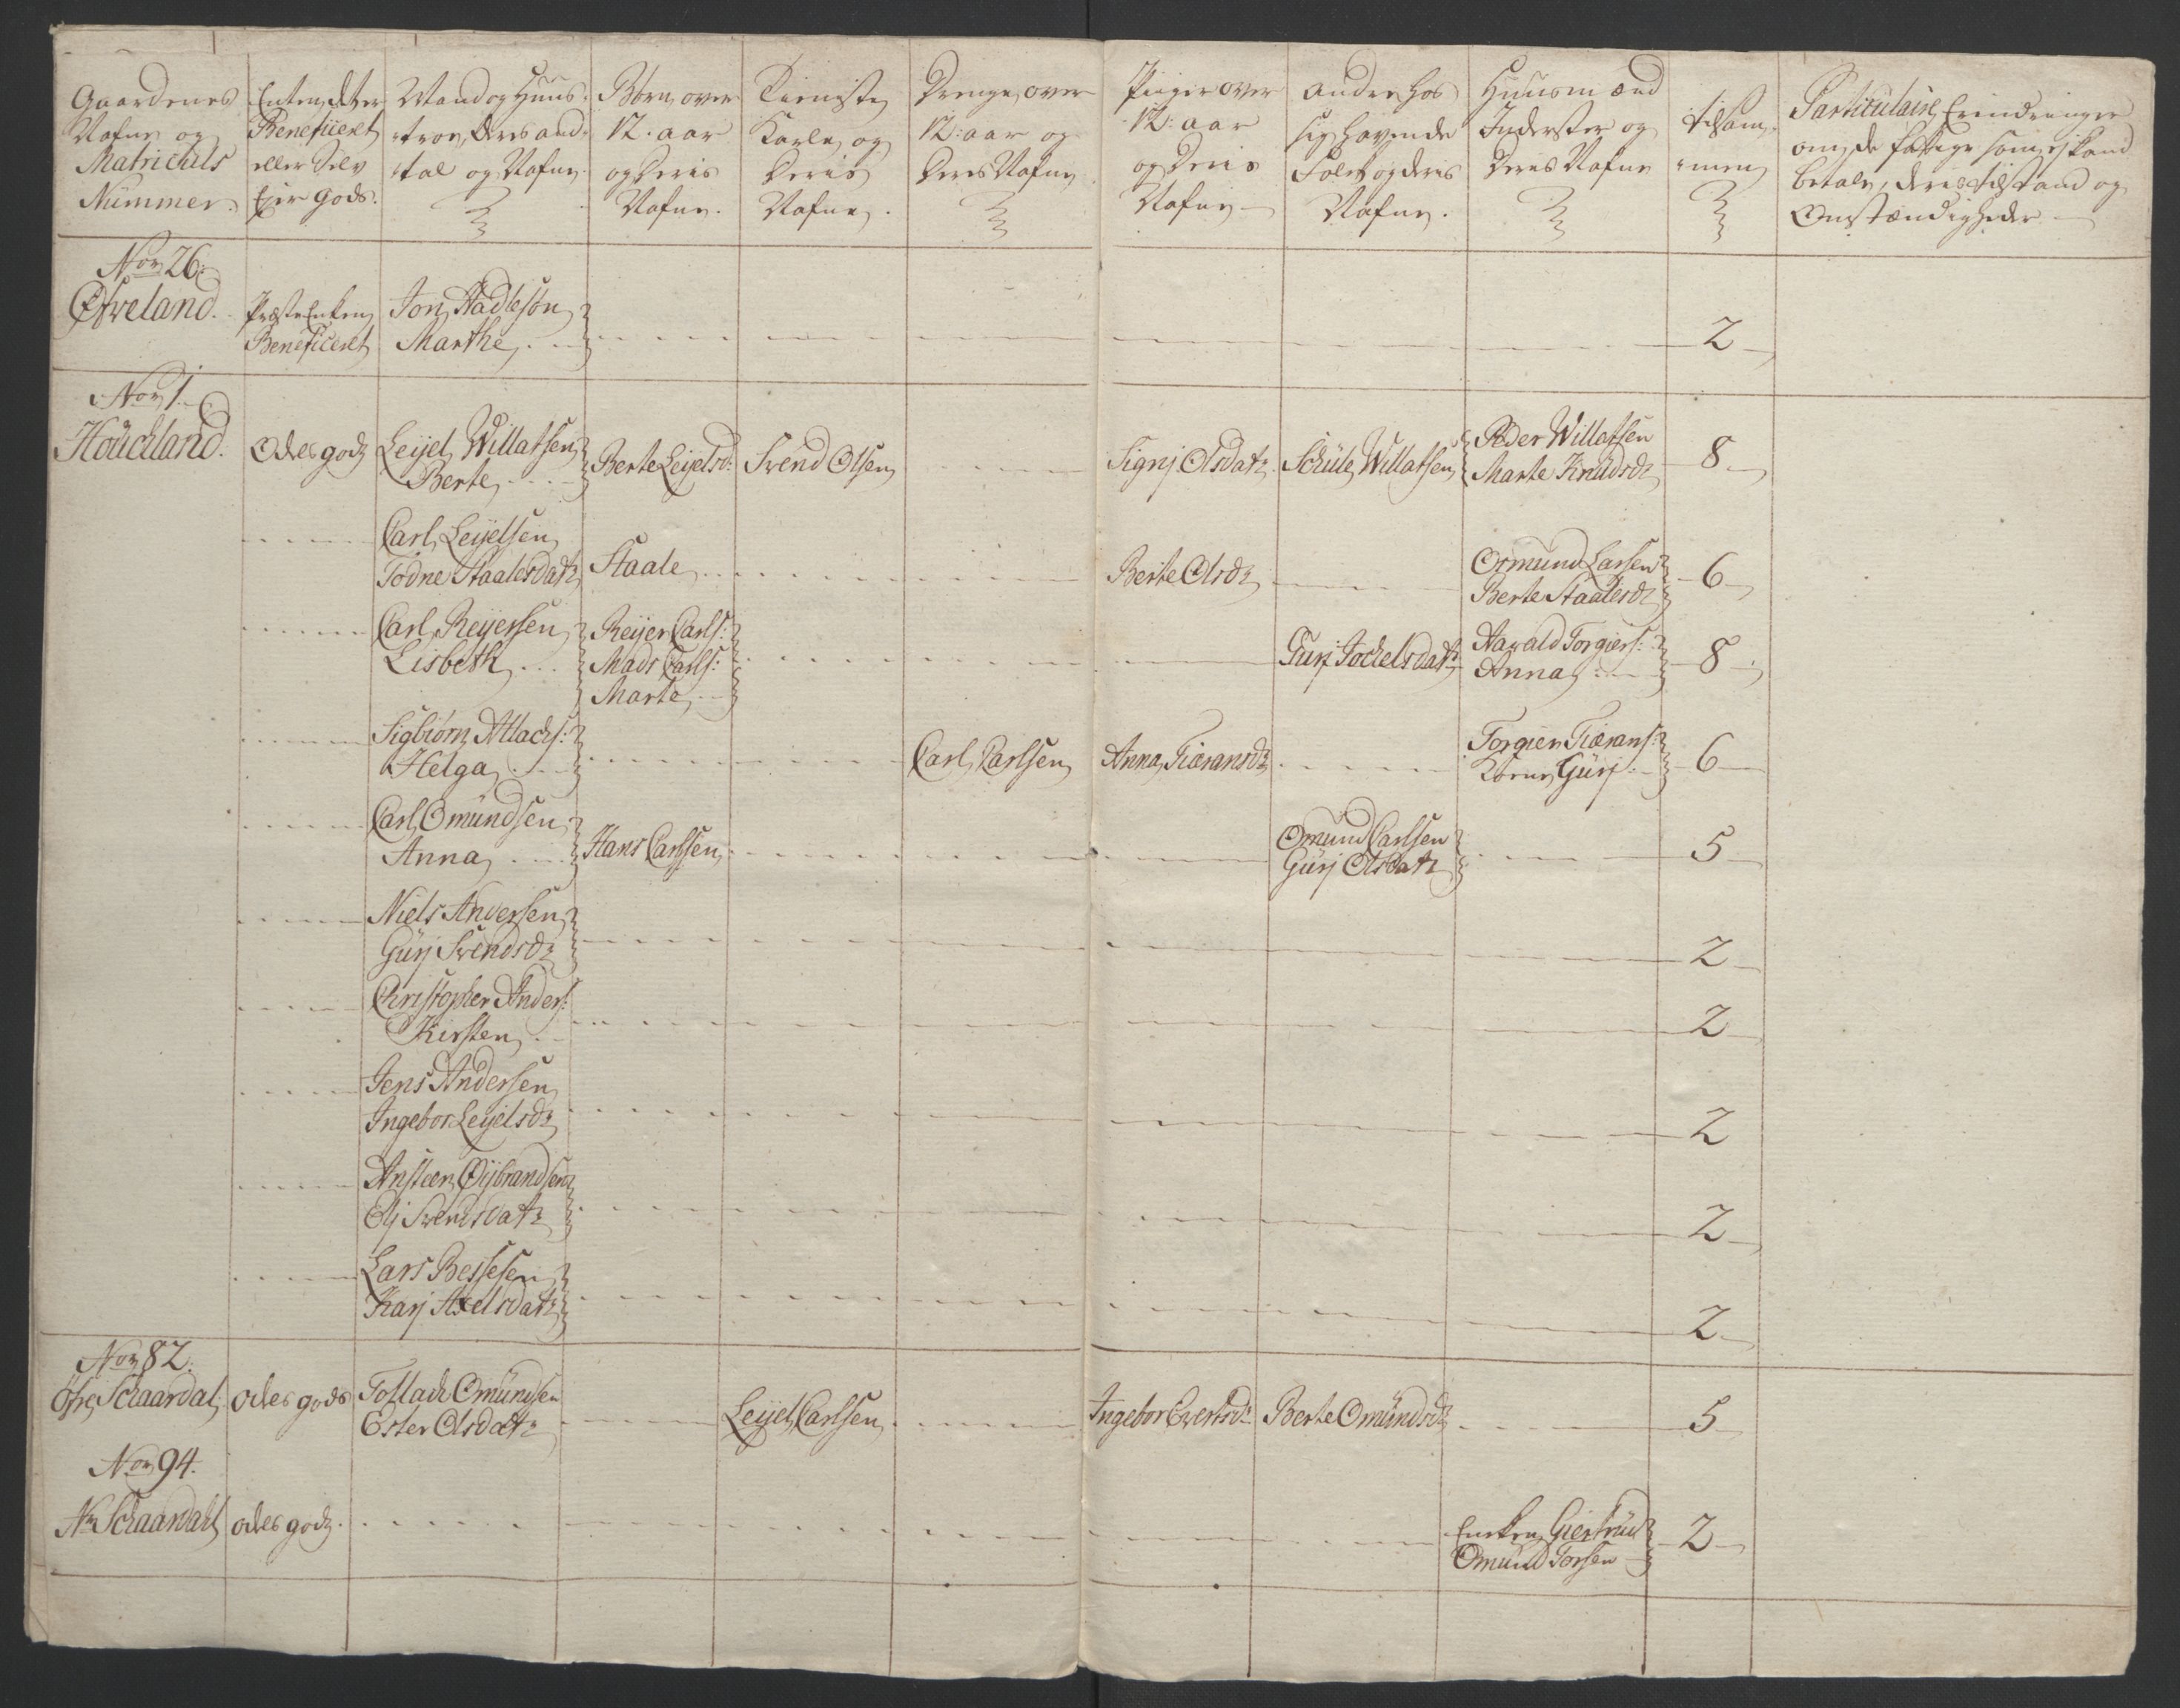 Gaardenes
Nafne og
Matrichuls
Nummer.
Enten, etter
Beneficeret
eller Selv
Ejer gods.
Mand og Huus-
troe, deres and-
tal og Nafne
Børn over
12. aar
og Deris
Nafne.
Tienniste
Karle og
Deris
Nafne.
Drenge, over
12: aar og
Deres Nafne
Piiger over
12: aar
og Deris
Nafne
Andre hos
sig havende
Folck og deris
Nafne.
Huusmænd
Inderster og
Deres Nafne
tilsam-
men
Particulaire Erindringer
om de fattige som ej kand
betale, deres tilstand og
Omstændigheder
No 26.
Øfreland.
Præste Enken
Beneficeret
Jon Aadleson
Marthe
2
No 1.
Houchland.
Odelsgods
Leijel Willatsen
Berte
Berte Leijelsd:
Svend Olsen
Signj Olsdatr
Schule Willatsen
Peder Willatsen
Marte Knudsdr
8
Carl Leijelsen
Todne Staalesdatr
Staale
Berte Olsdr
Osmund Larsen
Berte Staalesdr
6
Carl Reijersen
Lisbeth
Reijer Carls:
Mads Carls:
Marte
Gurj Jochelsdatr
Aavald Torgiers:
Anna
8
Sigbiørn Allachs:
Helga
Carl Carlsen
Anna Tiæransdr
Torgier Tiærans:
Kone Gurj
6
Carl Omundsen
Anna
Hans Carlsen
Omund Carlsen
Gurj Olsdatr
5
Niels Andersen
Gurj Svendsdr
2
Christopher Anders:
Kirsten
2
Jens Andersen
Ingebor Leijelsdr
2
Ansteen Øijbrandsen
Olj Svendsdatr
2
Lars Bessesen
Karj Axelsdatr
2
No 82.
Øfre Schaardal.
Odels gods
Tollach Omundsen
Ester Olsdatr
Leijel Carlsen
Ingebor Evertsdr
Berte Omundsdr
5
No 94.
Nr Schaardahl
Odelsgods.
Encken Giertrud
Omund Torsen
2